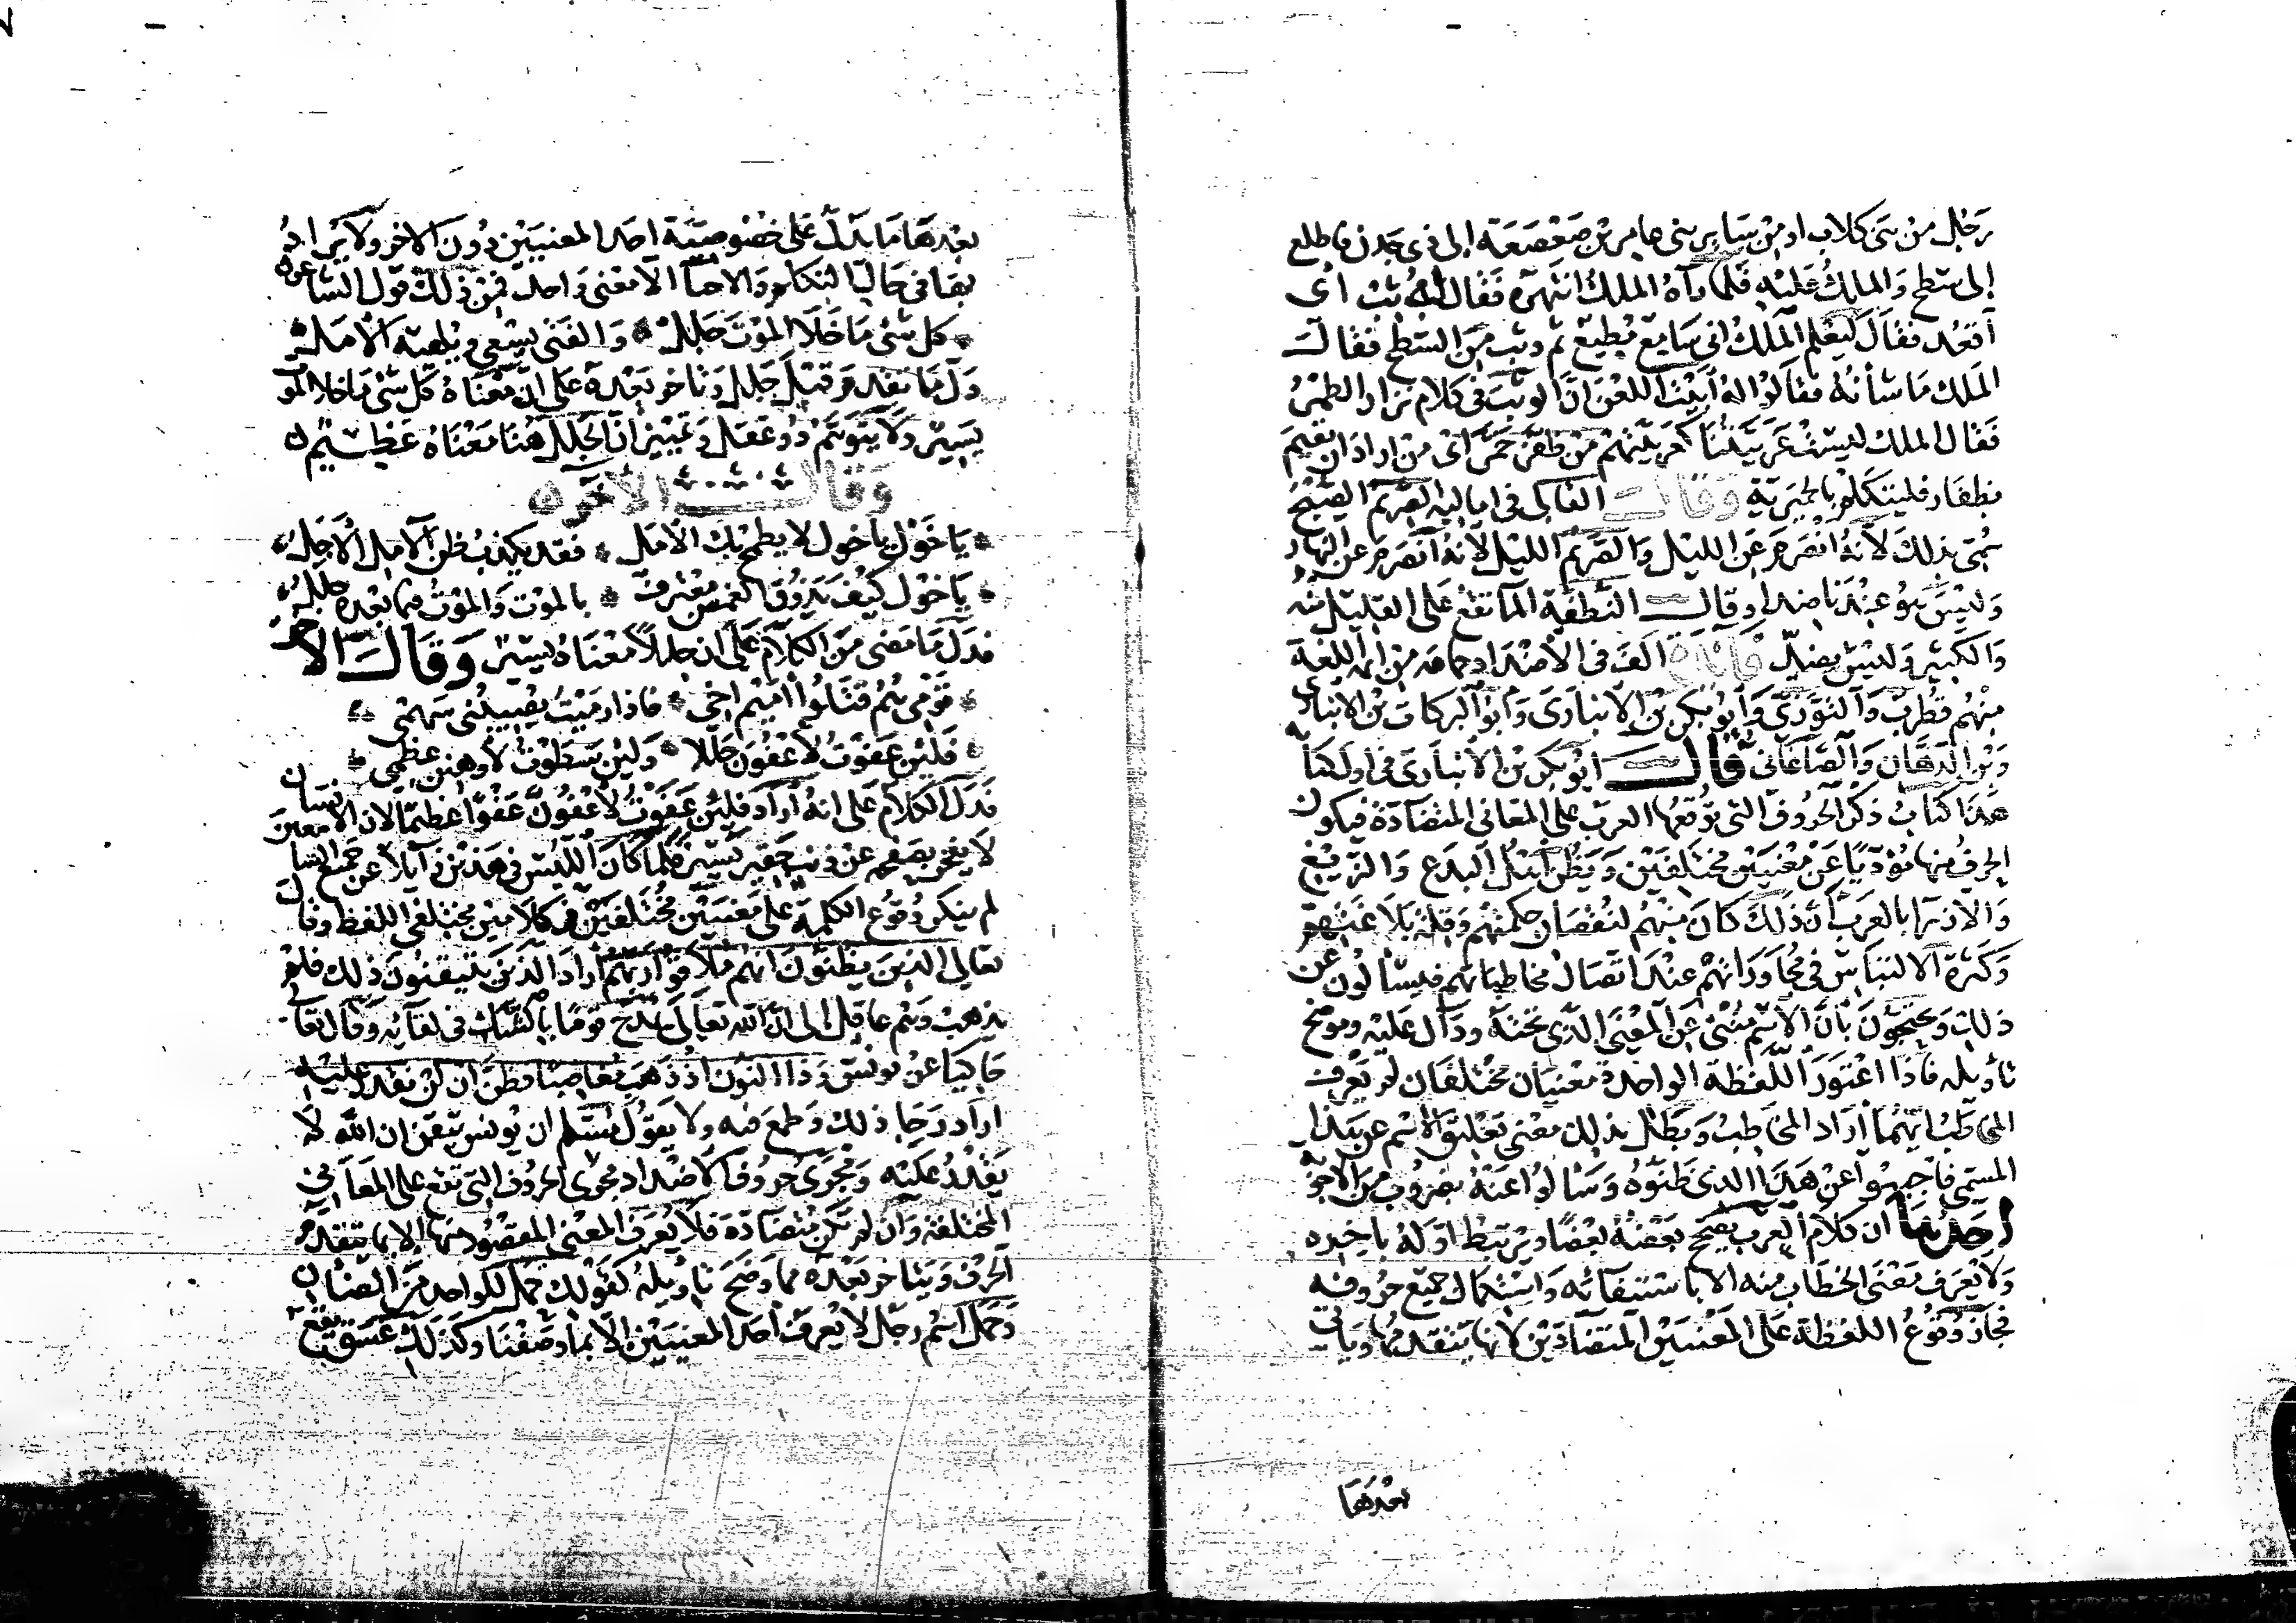 رَجُل من بَنى كلابٍ او من سَايِر بنى عامِر بْن صَعْصَعَة الى ذى جَدَن فاطلع
إلى سَطح وَالملكُ عَليْهِ فَلمّا رآهُ الملكُ انتهَرَهُ فَقال لهُ ثِبْ اى
اقعُد فقالَ ليَعْلم الملكُ انى سَامِع مُطِيع ثم وثبَ مِنَ السّطح فقالَ
الملك مَا شأنُهُ فقالوا لهُ أبَيْتَ اللعْنَ انَّ الوثبَ فى كلام نزار الطَّمْرُ
فَقال الملك ليسَتْ عَرَبيّتنا كعَرَبيّتهم مَن ظَفَّرَ حَمَّرَ اىْ مَن ارادَ ان يقيم
بظفار فليتكلّم بالحِمْيَريّة وَقالَ القالى فى اماليه الصّريم الصّبْحُ
سُمّى بذلكَ لأنهُ انْصَرَمَ عَنِ الليْل وَالصّريم الليْل لأنهُ انصَرَمَ عن النهار
وَليْسَ هوُ عِنْدَنا ضِدا وقالَ النّطفَة الماء تقعُ عَلى القليْل منه
وَالكثيْر وَليْسَ بضدّ فائدَة الَّفَ فى الأضداد جماعة من ائمة اللغة
مِنْهُم قُطرُب وَالتوّزىّ وَأبو بَكر بْن الأنبارى وَأبو البركات بْن الانبارى
وَبْن الدّهَّان وَالصَّاغَانى قالَ ابو بكر بن الأنبارى فى اول كتابه
هَذا كتابُ ذكر الحرُوف التى توقعُهَا العرب على المعَانى المتضادّة فيكون
الحرفُ منها مُؤديًا عَنْ مَعْنيَيْن مُختلفَيْن وَيَظُن اهْلُ البدَع وَالزّيْغ
وَالأزرَا بالعرَب أنّ ذلكَ كانَ مِنْهُم لنُقصَان حِكمتهم وَقلّة بَلاغتهم
وَكثرة الالتباس فى مُحَاوَراتهمْ عِنْدَ اتّصَال مخاطباتهم فيسْألون عن
ذلك وَيحتجُّونَ بأنَّ الأسْم مُنْبئ عَنِ المعْنَى الذّى تحتهُ ودَالّ عَليْه وموضح
تأويله فاذا اعْتوَرَ اللّفْظة الواحِدة مَعْنيَان مُخْتلفَان لم يَعْرِف
المخَاطَبُ ايّهُما ارَاد المخَاطِبُ وَبَطَل بذلك معْنى تعْليق الأسْم عن هذا
المسمّى فاجيبُوا عَنْ هَذا الذى ظنّوهُ وَسَالوا عَنْهُ بضرُوبٍ من الأجوبة
احَدُهَا ان كلامَ العرب يصحِّح بَعْضُهُ بَعْضًا ويَرْتبط اوّلهُ بآخِره
وَلا يُعْرَف مَعْنَى الخطاب منه الا باستيفائه وَاستكمال جميْع حُروفه
فجَازَ وُقوعُ اللفظة عَلى المعْنيَيْن المتضادّيْن لأنها يَتقدّمُها وَيأتى
بعْدَهَا
بعْدهَا مَا يَدُلُّ عَلى خُصُوصيَّة احَد المعنيَيْن دُونَ الآخر ولا يُرَادُ
بهَا فى حَال التكلم وَالاخبار الا مَعْنى وَاحِد فمن ذلكَ قوْل الشاعر
كل شَئ مَا خَلَا الموْتَ جَلَل وَالفَتَى يَسْعى ويُلْهيه الأمَل
دَلّ مَا تقدم قبْلَ جَلل وَتأخر بَعْدهُ عَلى انّ مَعْنَاهُ كل شئ مَا خلا المو
يَسِيْر وَلا يَتَوَهّم ذُو عَقل وَتمْيِيْز انّ الجَلل هُنا مَعْنَاهُ عَظِيْم
وَقالَ الآخر
يَا خَوْل يا خول لا يطمح بِكَ الأمَل فقد يكذبُ ظن الآمل الأجَل
يَا خَوْل كَيْفَ يَذوق الغمضَ مُعْتَرف بالموْت وَالموْتُ فيما بَعْدهُ جلل
فدلَّ مَا مَضى مِنَ الكلام عَلى ان جللا مَعْنَاهُ يسير وَقالَ الآخر
قوْمى هُمُ قتلوا اميْم اخى فاذا رمَيْتُ يُصِيْبُنى سَهْمى
فَلئِن عَفوْتُ لأعْفوَن جَللا وَلئِن سَطوْتُ لأوهِنن عظمى
فدلّ الكلام عَلى انهُ اراد فلئن عَفوْتُ لأعْفوَنّ عَفْوًا عظيما لان الانسان
لا يفخر بصَفحه عن ذنبٍ حَقِير يَسير فلما كان اللّبس فى هَذيْن زَائلا عن جميع السا
لم ينكر وُقوع الكلمة عَلى مَعْنَيَيْن مُخْتلفَيْن فى كلامَيْن مختلفى اللفظ وقال
تعالى الذينَ يَظنونَ انهم مُلاقو ارَبّهم ارادَ الذينَ يتيقنونَ ذلك فلم
يذهبْ وَهْمُ عاقل الى انَّ الله تعالى يمدح قوْمًا بالشك فى لقائِه وَقال تعا
حَاكِيًا عَن يُونسَ وَذا النّون اذ ذهَبَ مُغاضِبًا فظنَّ ان لن نقدر عليْه
ارَادَ رَجَا ذلك وَطمعَ فيه ولا يقولُ مُسْلِم ان يُونس تيَقنَ ان اللّه لا
يَقدرُ عَليْه وَمَجْرَى حُروف الأضداد مَجْرَى الحروف التى تقع على المعَانى
المختلفة وَان لم تكن مُتضَادّة فلا يُعْرَف المعْنى المقصُود منها الا بما يتقدّم
الحرْف وَيتأخر بعْدهُ مما وَضحَ تأويلهُ كقولك حَمَل للواحد من الضّان
وَحَمَل اسْم رجُل لا يُعرفُ احَد المعنيَيْن الا بما وَصفْنَا وكذلكَ غَسَق يقع